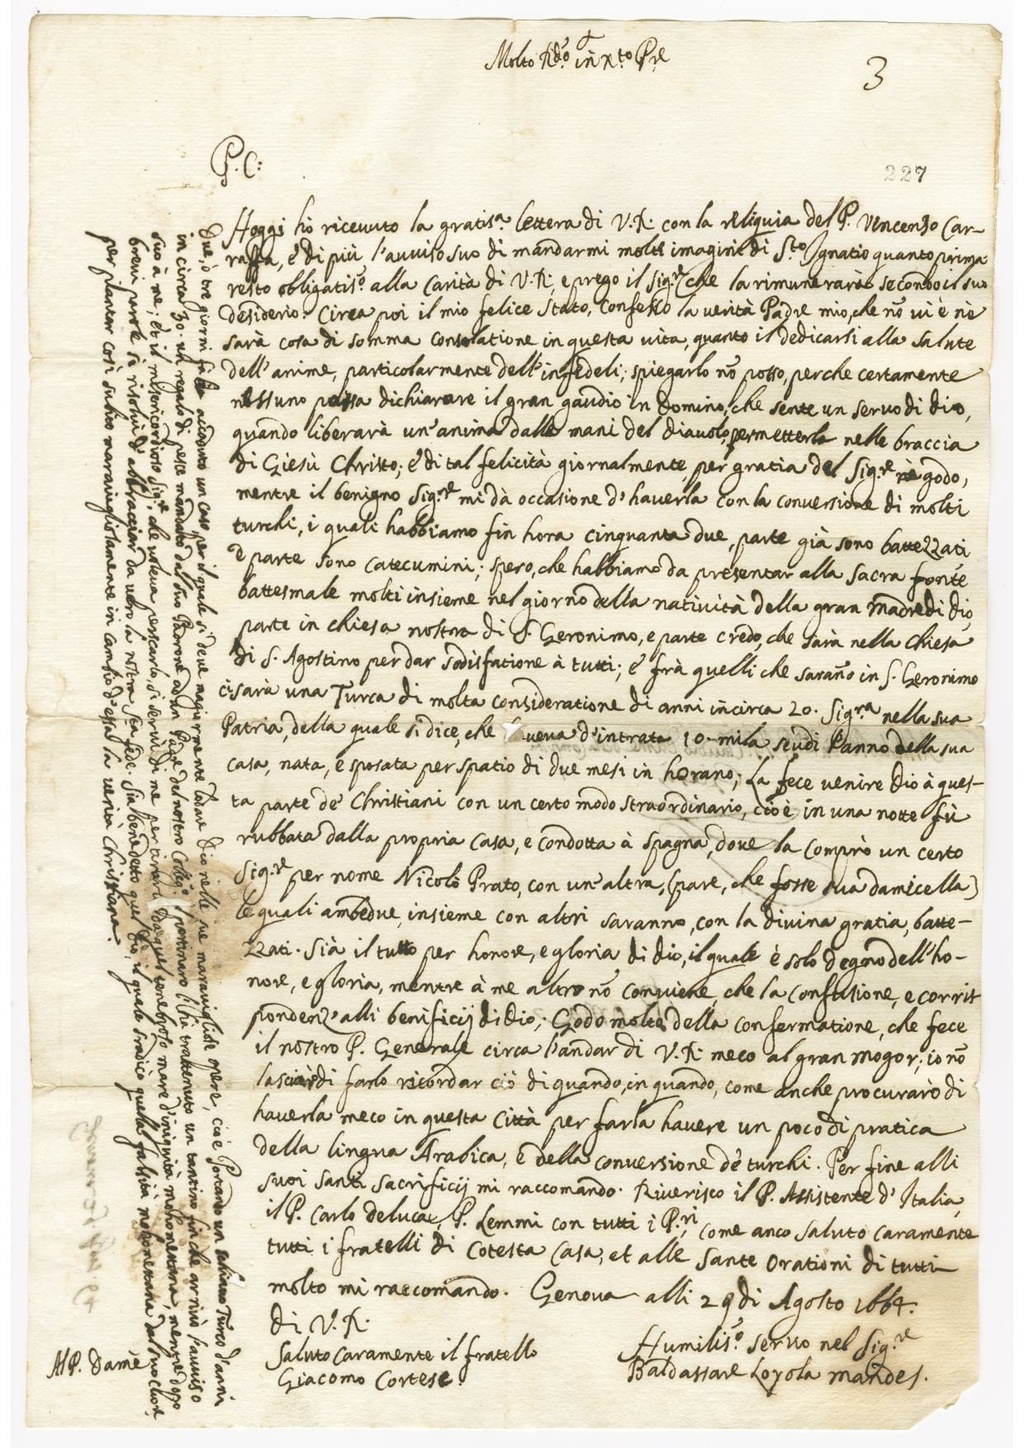 Molto Rdo in Xto Pre
3
P. C:
227
Hoggi ho ricevuto la gratisa lettera di V.R. con la reliquia del P. Vincenzo Car-
raffa, e di più l'avviso suo di mandarmi molte imagini di Sto Ignatio quanto prima
resto obligatiso alla Carità di V.R., e prego il Sigre che la rimunerarà secondo il suo
desiderio. Circa poi il mio felice Stato, Confesso la verità Padre mio, che nõ vi è nè
sarà cosa di somma Consolatione in questa vita, quanto il dedicarsi alla Salute
dell'anime, particolarmente dell'infedeli; spiegarlo nõ posso, perche certamente
nessuno possa dichiarare il gran gaudio in Domino, che sente un servo di Dio,
quando liberarà un'anima dalle mani del diavolo, permetterla nelle braccia
di Giesù Christo; e di tal felicità giornalmente per gratia del Sigre ne godo,
mentre il benigno Sigre mi dà occasione d'haverla con la conversione di molti
turchi, i quali habbiamo fin hora cinquanta due, parte già sono battezzati
e parte sono Catecumini; spero, che habbiamo da presentar alla Sacra fonte
battesmale molti insieme nel giorno della natività della gran Madre di Dio,
parte in chiesa nostra di S. Geronimo, e parte credo, che sarà nella chiesa
di S. Agostino per dar sodisfatione à tutti; e frà quelli che sarãno in S. Geronimo
ci sarà una Turca di molta consideratione di anni incirca 20. Sigra nella sua
Patria, della quale si dice, che haveva d'intrata 10 mila scudi l'anno della sua
casa, nata, e sposata per spatio di due mesi in horano; La fece venire Dio à ques-
ta parte de' Christiani con un certo modo straordinario, cioè in una notte fù
rubbata dalla propria Casa, e condotta à Spagna, dove la comprò un certo
Sigre per nome Nicolò Prato, con un'altra, (pare, che fosse sua damicella)
le quali ambedue, insieme con altri saranno, con la divina gratia, batte-
zzati. Sià il tutto per honore, e gloria di Dio, il quale è solo degno dell'ho-
nore, e gloria, mentre à me altro nõ conviene, che la Confusione, e corris-
pondenz'alli benificij di Dio; Godo molto della confermatione, che fece
il nostro P. Generale circa l'andar di V.R. meco al gran mogor; io nõ
lasciarò di farlo ricordar ciò di quando, in quando, come anche procurarò di
haverla meco in questa Città per farla havere un poco di pratica
della lingua Arabica, e della conversione de' turchi. Per fine alli
suoi santi sacrificij mi raccomando. Riverisco il P. Assistente d'Italia,
il P. Carlo de luca, P. Lemmi con tutti i P.ri, come anco saluto caramente
tutti i fratelli di cotesta casa, et alle Sante Orationi di tutti
molto mi raccomando. Genova alli 29 di Agosto 1664.
di V.R.
Saluto Caramente il fratello
Giacomo Cortese.
Humiliso servo nel Sigre
Baldassare Loyola Mandes.
Al P. Damè
due, ò tre giorni fà è accaduto un caso, per il quale si deve magiormente lodare Dio nelle sue maravigliose opere, cioè Portando un schiavo Turco d'anni
in circa 30. un regalo di pesce mandato dal suo Padrone ad un Padre del nostro Collego. il portinaro l'hà trattenuto un tantino finche arrivò l'avviso
suo à me; et il misericordioso Sigre, che voleva pescarlo, si servì di me per tirarlo da quel tenebroso mare d'iniquità mahomettana, mentre dopo
brevi parole si risolvè d'abbracciar da vero la nostra Sta fede. Sia benedetto quel Dio, il quale sradicò quella falsità mahomettana dal suo cuore,
per piantar così subito maravigliosamente in cambio d'essa la verità Christiana.